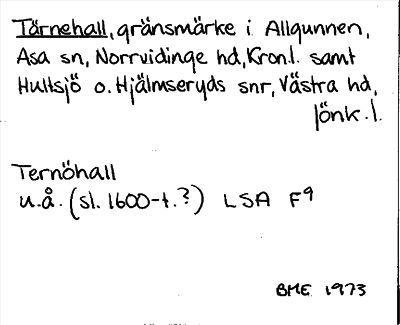 Tärnehall, gränsmärke i Allgunnen,
Asa sn, Norrvidinge hd, Kron.l. samt
Hultsjö o. Hjälmseryds snr, Västra hd,
Jönk.l.
Ternöhall
u.å. (sl. 1600-t.?) LSA F9
BME 1973